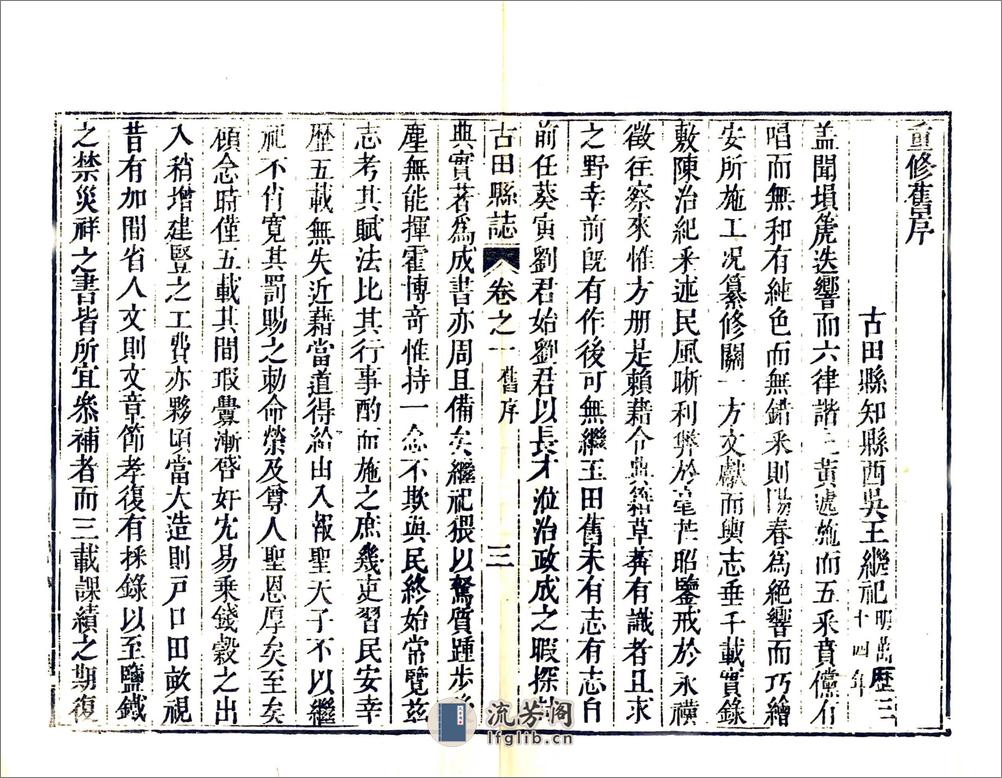 重修舊序
古田縣知縣西吳王繼祀明萬歷三十四年
盖聞塤篪迭響而六律諧玄黃遞施而五采賁儻有
唱而無和有純色而無錯采則陽春為絕響而巧繪
安所施工况纂修關一方文獻而輿志垂千載實錄
敷陳治紀采述民風晰利弊於毫芒昭鑒戒於永禩
徵往察來惟方册是賴藉令典籍草莽有識者且求
之野幸前旣有作後可無繼玉田舊未有志有志自
前任葵寅劉君始劉君以長才涖治政成之暇探
古田縣誌 卷之一 舊序 三
典實著為成書亦周且備矣繼祀猥以駑質踵步
塵無能揮霍博奇惟持一念不欺與民終始常覽茲
志考其賦法比其行事酌而施之庶幾吏習民安幸
歷五載無失近藉當道得給由入報聖天子不以繼
祀不肖寬其罰賜之勅命榮及尊人聖恩厚矣至矣
顧念時僅五載其間瑕釁漸啓奸宄易乘錢穀之出
入稍增建豎之工費亦夥頃當大造則戸口田畝視
昔有加閭省人文則文章節孝復有採錄以至鹽鐵
之禁災祥之書皆所宜叅補者而三載課績之期復
流芳阁
lfglib.cn